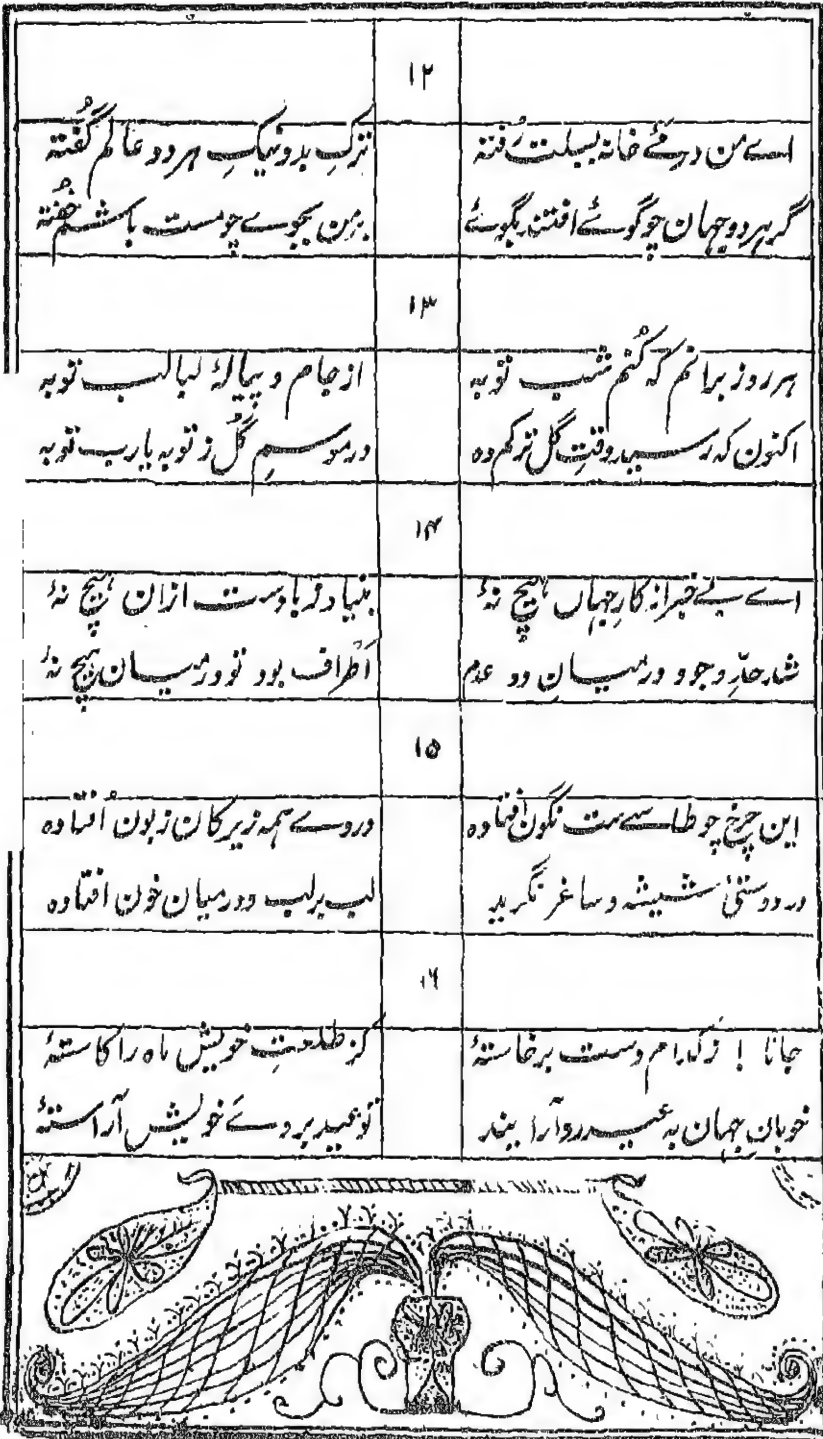 ۱۲
اے من درِ مئے خانہ بسبلت رُفتہ ترکِ بد و نیکِ ہر دو عالم گُفتہ
گر ہر دو جہان چو گوئے افتند بگوئے بر من بجوے چو مست باشم خُفتہ
۱۳
ہر روز برانم کہ کُنم شب توبہ از جام و پیالۂ لبالب توبہ
اکنون کہ رسید وقتِ گل ترکم دہ در موسمِ گُل ز توبہ یارب توبہ
۱۴
اے بے خبر از کارِ جہاں ہیچ نۂ بنیاد تُو باوست ازان ہیچ نۂ
شد حدِّ وجود درمیانِ دو عدم اَطراف بود تو درمیان ہیچ نۂ
۱۵
این چرخ چو طاسے ست نگون افتادہ دروے ہمہ زیرکان زبون اُفتادہ
در دوستیٔ شیشہ و ساغر نگرید لب بر لب و درمیان خون افتادہ
۱۶
جانا ! ز کدام دست برخاستۂ کز طلعتِ خویش ماہ را کاستۂ
خوبانِ جہان بہ عید رو آرایند تو عید بروے خویش آراستۂ